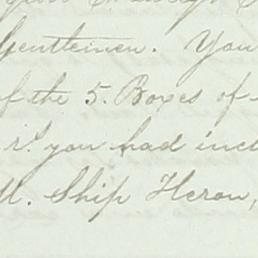 Gentlemen. You
of the 5. Boxes of
you had incl
M. Ship Heron,